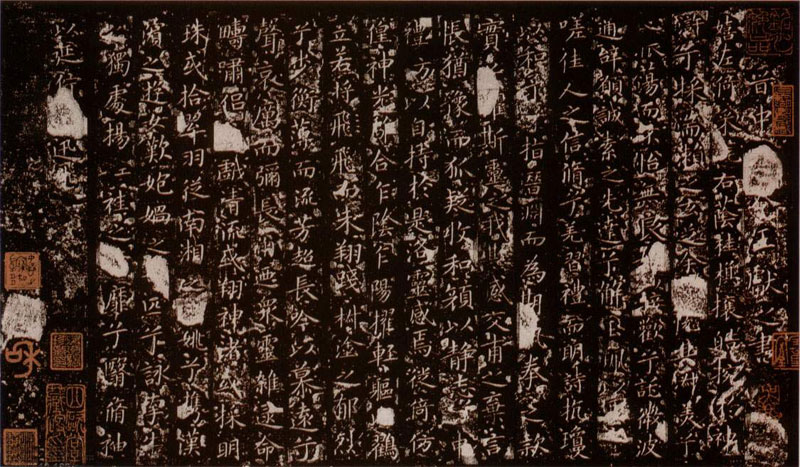 晋中令王獻之書
嬉左倚采右蔭桂旗攘皓捥於神
滸兮采湍瀨之玄芝余其淑美兮
心振蕩而不怡無良接歡兮託微波
通辭願誠素之先達兮解
嗟佳人之信脩兮羌習禮而明詩抗瓊
以和予兮指潛淵而為期執拳之款
實懼斯靈之我欺感交甫之棄言
悵猶豫而狐疑收和顏以静志兮申
禮防以自持於是洛靈感焉徙倚仿
偟神光離合乍陰乍陽擢輕軀以鶴
立若將飛而未翔踐椒塗之郁烈
兮步衡薄而流芳超長吟以慕遠兮
聲哀厲而彌長爾迺衆靈雜遝命
疇嘯侣戲清流或翔神渚或採明
珠或拾翠羽從南湘之姚兮攜漢
濱之遊女歎匏媧之匹兮詠牽牛
獨處揚輕袿之靡兮翳脩袖
以延佇迅飛